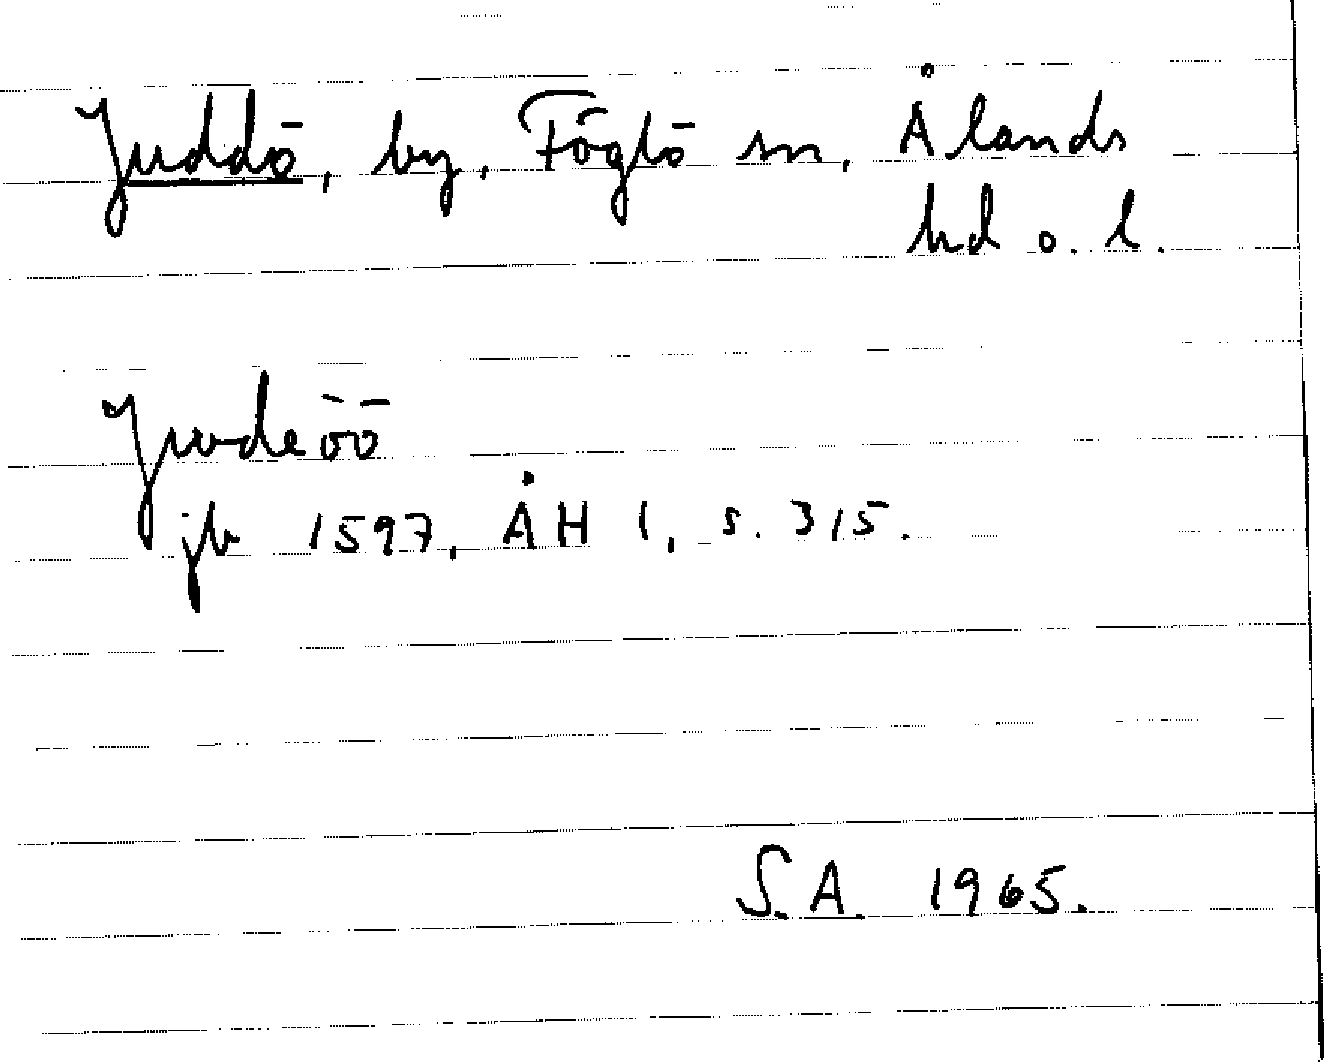 Juddö, by, Föglö sn, Ålands
hd o. l.
Judeöö
jb 1597, ÅH 1, s. 315.
S.A. 1965.